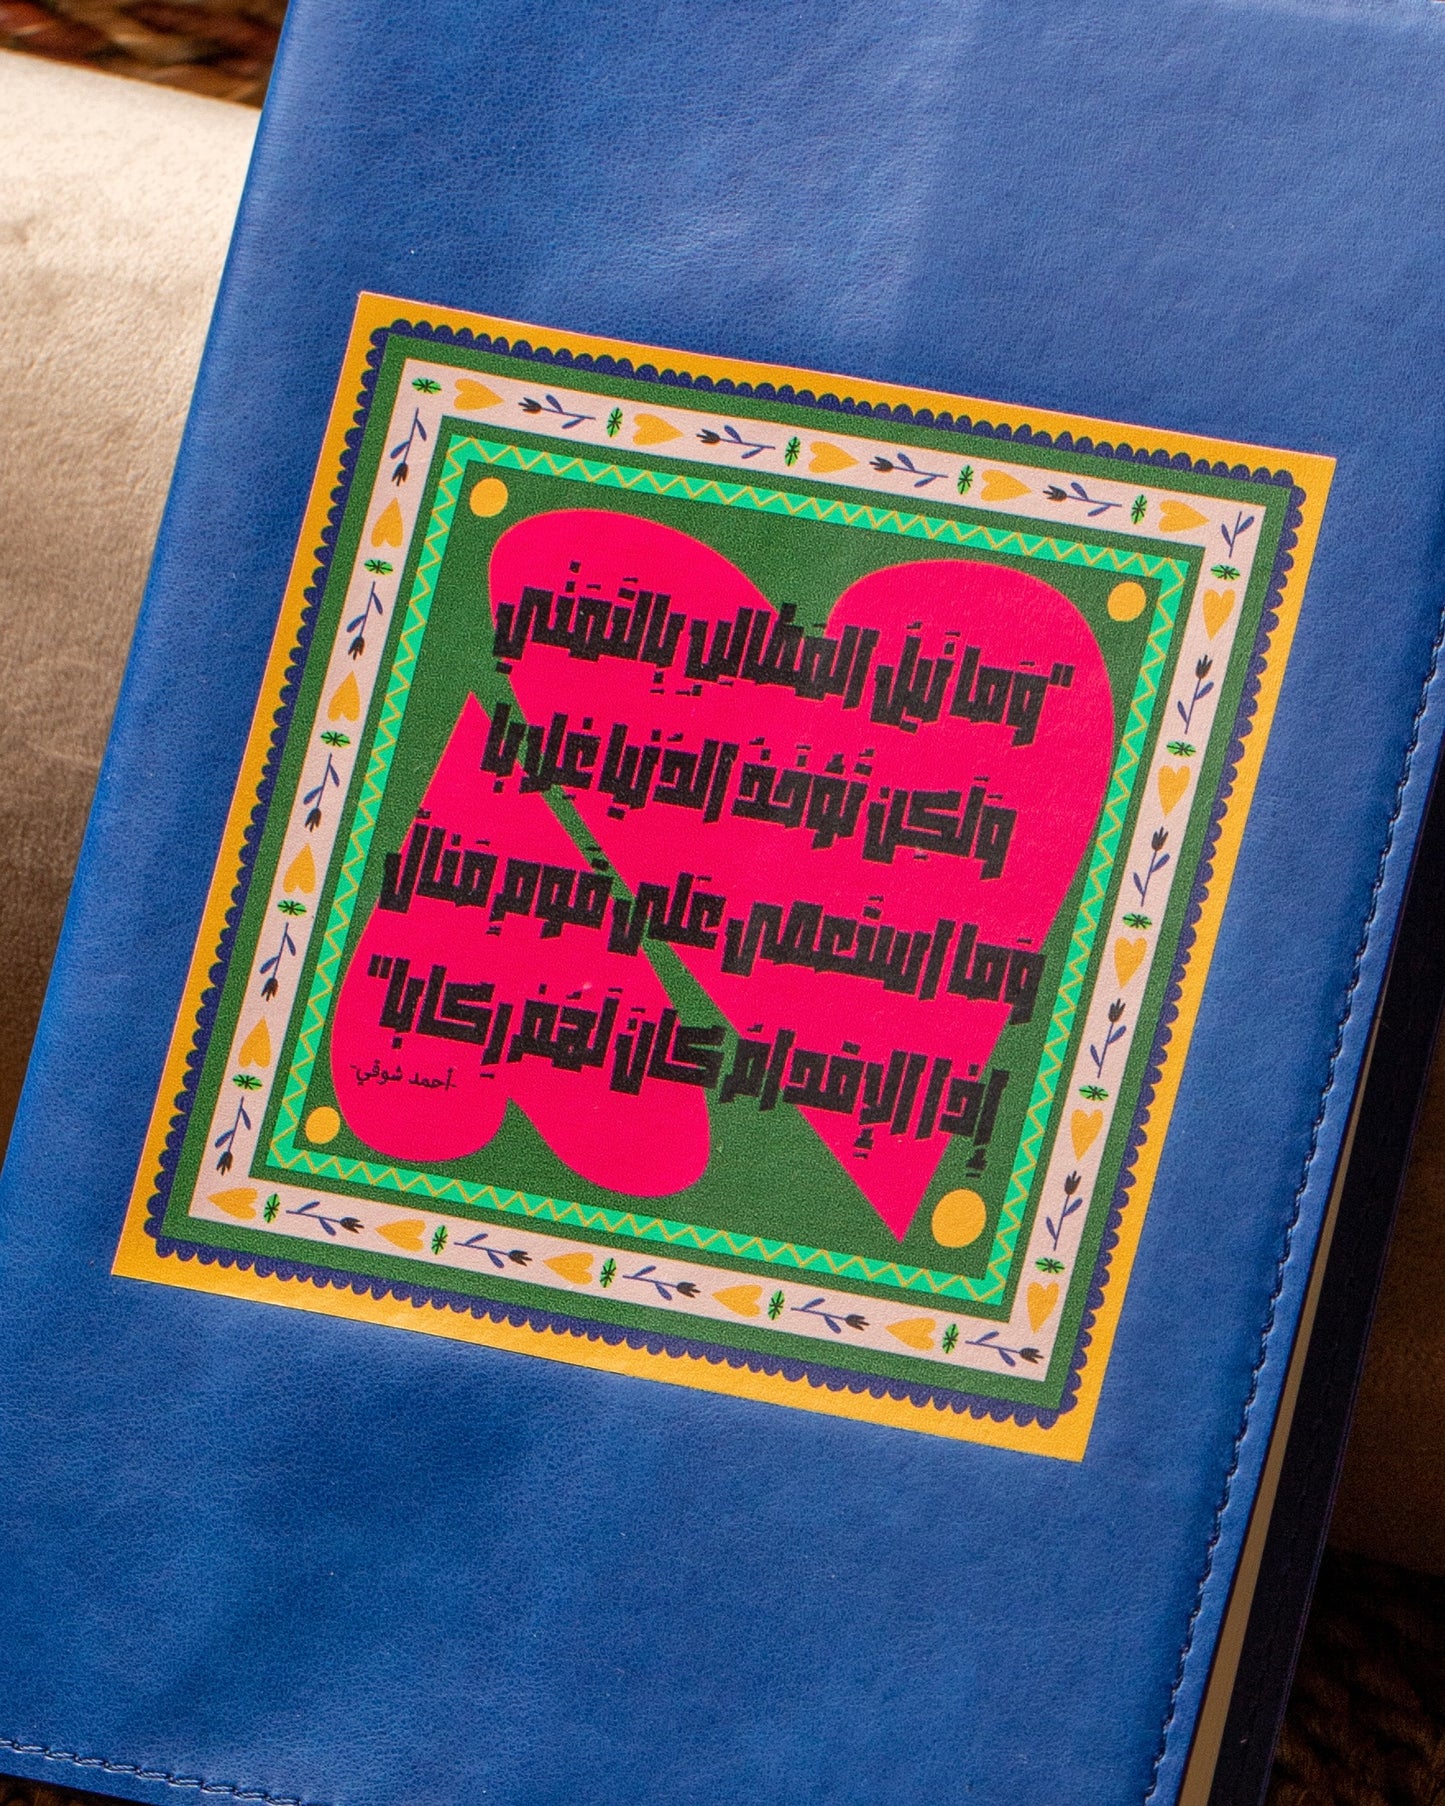 "وَما نَيلُ المَطالِبِ بِالتَمَنّي
وَلَكِن تُؤخَذُ الدُنيا غِلابا
وَما اِستَعصى عَلى قَومٍ مَنالٌ
إِذا الإِقدامُ كانَ لَهُم رِكابا"
-أحمد شوقي-